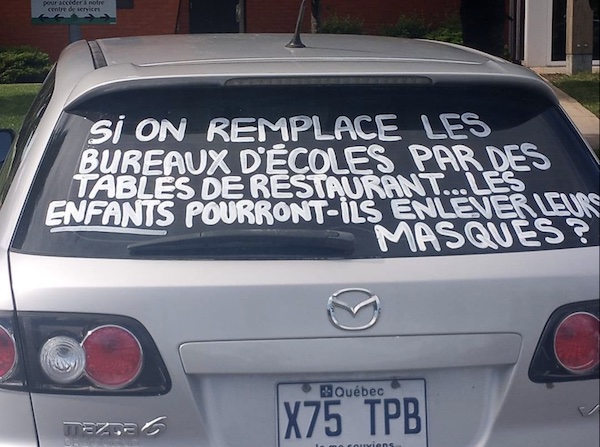 pour accéder à notre
centre de services
Si ON REMPLACE LES
BUREAUX D'ÉCOLES PAR DES
TABLES DE RESTAURANT... LES
ENFANTS POURRONT-ILS ENLEVER LEURS
MASQUES?
Québec
X75 TPB
Je me souviens
mazda 6